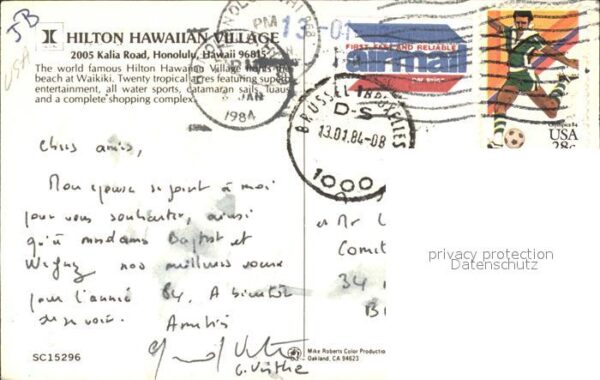 JB
USA
HILTON HAWAIIAN VILLAGE
2005 Kalia Road, Honolulu, Hawaii 96815
The world famous Hilton Hawaiian Village
beach at Waikiki. Twenty tropical acres featuring superb
entertainment, all water sports, catamaran sails, luaus
and a complete shopping complex.
HONOLULU HI
PM
JAN
1984
13-01
FIRST FAST AND RELIABLE
airmail
Olympics 84
USA
28c
BRUSSEL 1 BRUXELLES
D-S
13.01.84-08
1000
Chers amis,
Mon épouse se joint à moi
pour vous souhaiter, ainsi
qu'à madame Baptist et
nos meilleurs voeux
pour l'année 84. A bientôt
de se voir.
Amitiés
Mr
Comit
34
B
privacy protection
Datenschutz
SC15296
Mike Roberts Color Productio
Oakland, CA 94623